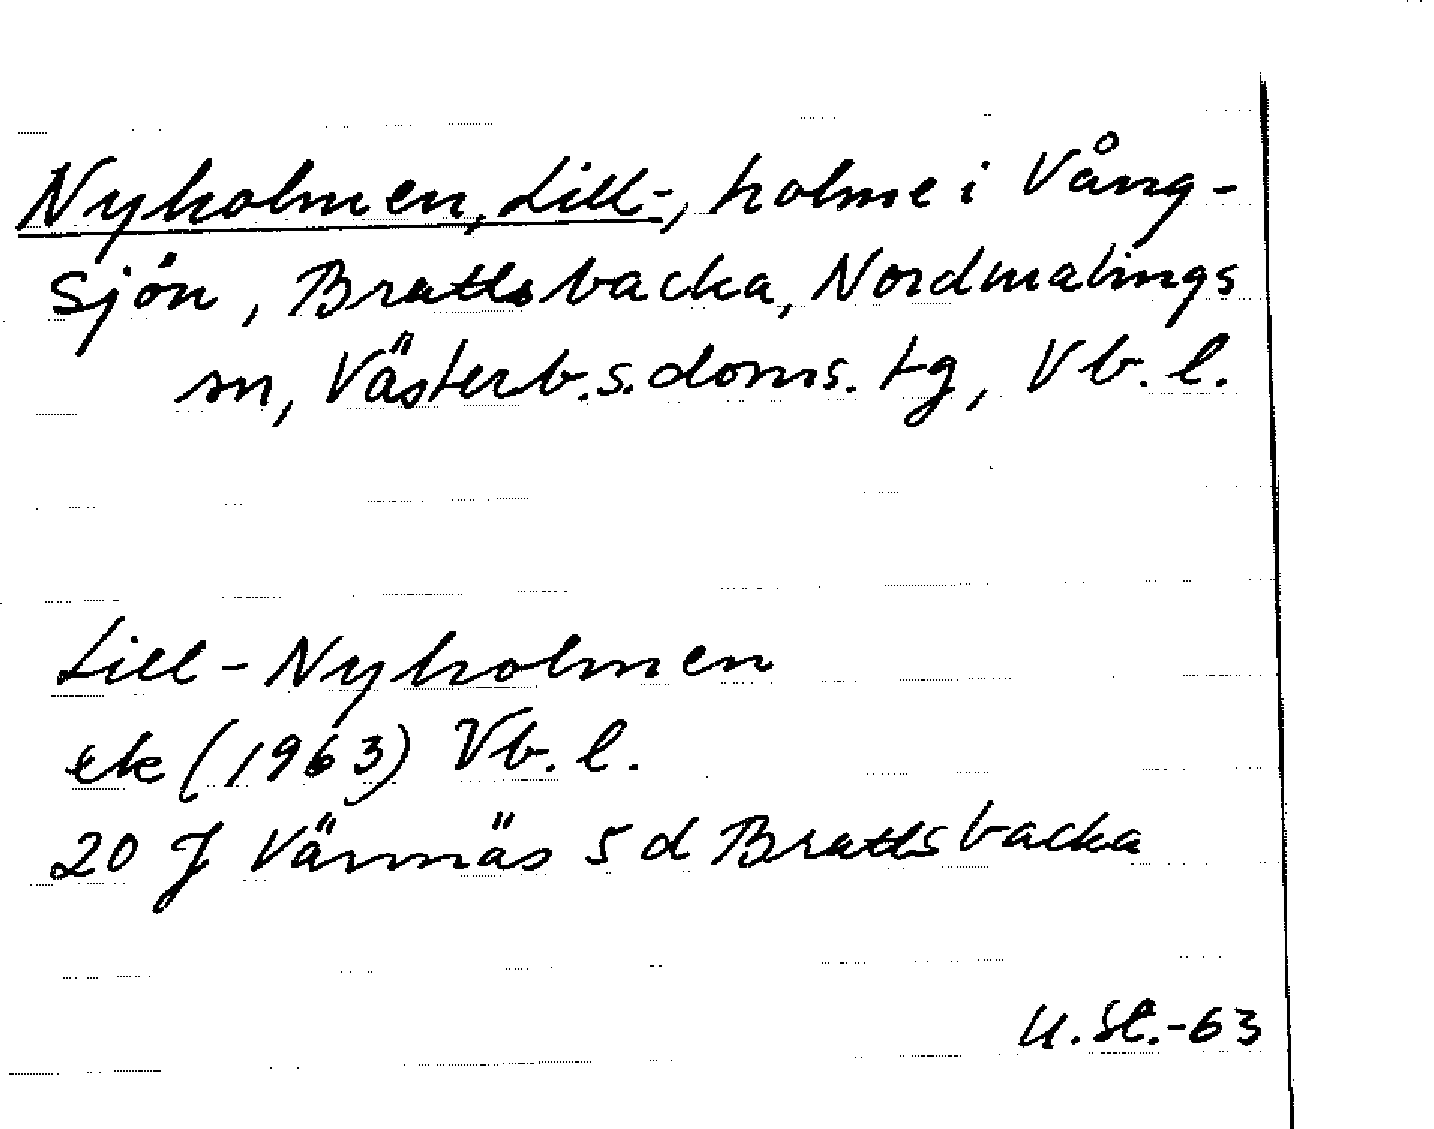 Nyholmen, Lill-, holme i Vång-
sjön, Brattsbacka, Nordmalings
sn, Västerb.s. doms. tg, Vb. l.
Lill-Nyholmen
ek (1963) Vb. l.
20 J Värnäs 5 d Brattsbacka
U. St.-63